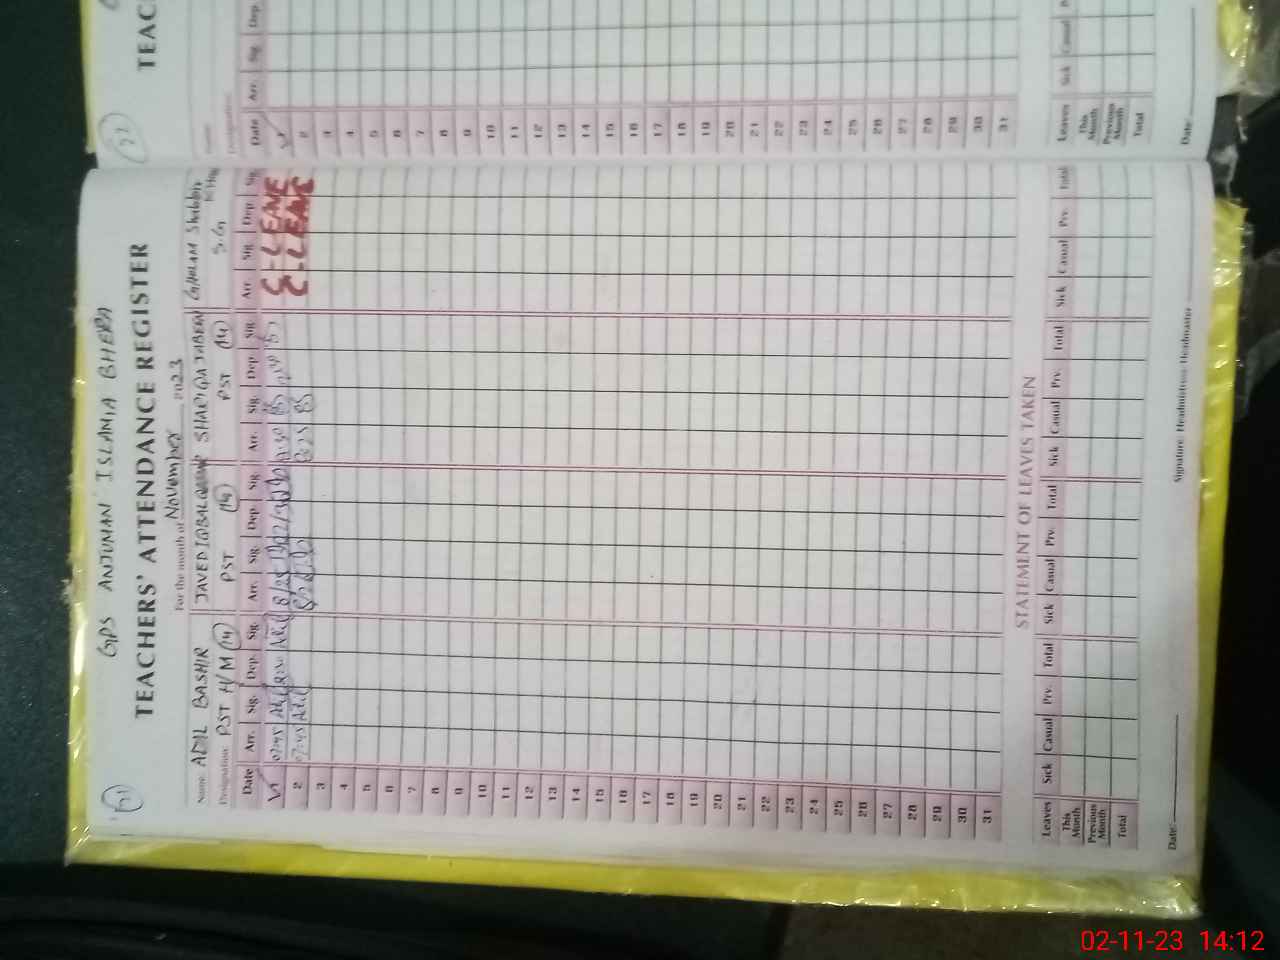 71
GPS ANJUMAN ISLAMIA BHERA
TEACHERS' ATTENDANCE REGISTER
For the month of November 2023
Name: ADIL BASHIR JAVED IQBAL SHAFIQA JABEEN GHULAM Shabbir
Designation: PST H/M (14) PST (14) PST (14) S.G
Date Arr. Sig. Dep. Sig. Arr. Sig. Dep. Sig. Arr. Sig. Dep. Sig. Arr. Sig. Dep. Sig.
1 07:45 Adil Adil 8/25 C-LEAVE
2 07:45 Adil 8/25 8:25 C-LEAVE
3
4
5
6
7
8
9
10
11
12
13
14
15
16
17
18
19
20
21
22
23
24
25
26
27
28
29
30
31
STATEMENT OF LEAVES TAKEN
Leaves Sick Casual Prv. Total Sick Casual Prv. Total Sick Casual Prv. Total Sick Casual Prv. Total
This Month
Previous Month
Total
Date: Signature: Headmistress/Headmaster
72
TEAC
Name
Designation:
Date Arr. Sig. Dep.
1
2
3
4
5
6
7
8
9
10
11
12
13
14
15
16
17
18
19
20
21
22
23
24
25
26
27
28
29
30
31
Leaves Sick Casual
This Month
Previous Month
Total
Date:
02-11-23 14:12